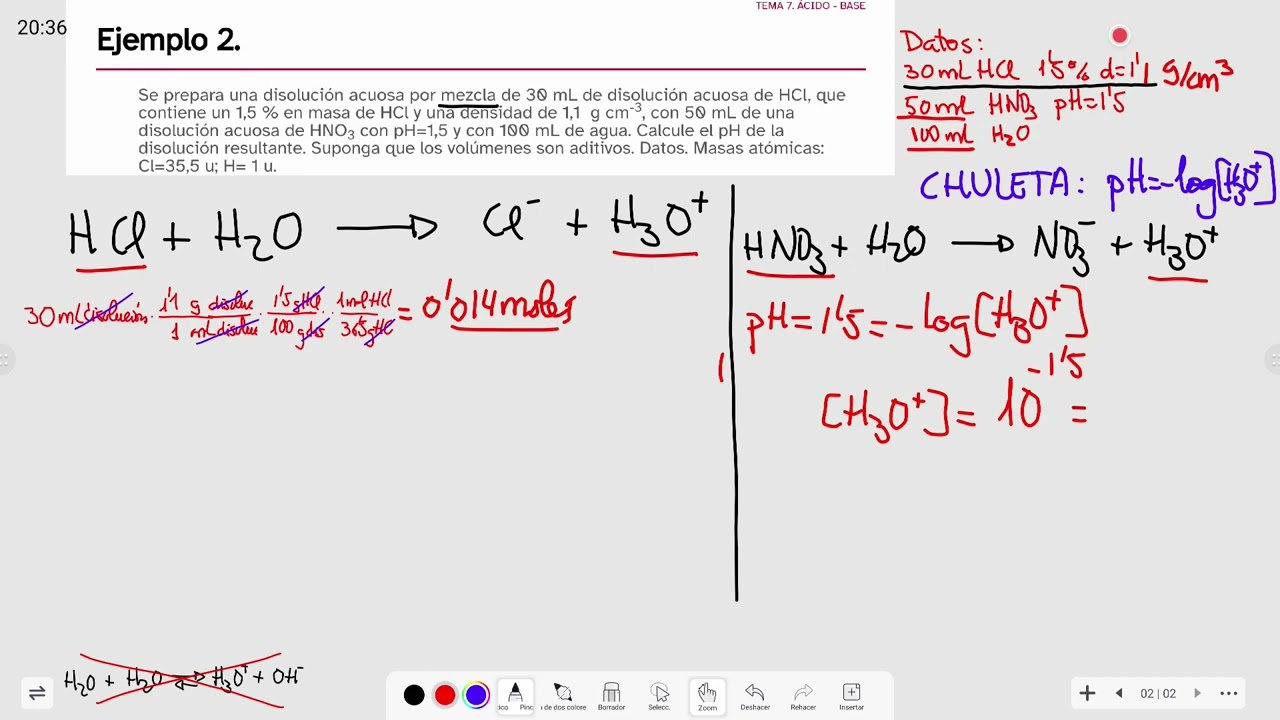 TEMA 7. ÁCIDO - BASE
20:36
Ejemplo 2.
Se prepara una disolución acuosa por mezcla de 30 mL de disolución acuosa de HCl, que
contiene un 1,5 % en masa de HCl y una densidad de 1,1 g cm⁻³, con 50 mL de una
disolución acuosa de HNO₃ con pH=1,5 y con 100 mL de agua. Calcule el pH de la
disolución resultante. Suponga que los volúmenes son aditivos. Datos. Masas atómicas:
Cl=35,5 u; H= 1 u.
Datos:
30mL HCl 1'5% d=1'1 g/cm³
50mL HNO₃ pH=1'5
100mL H₂O
CHULETA: pH=-log[H₃O⁺]
HCl + H₂O → Cl⁻ + H₃O⁺
30mL disolución · 1'1 g disolu / 1 mL disolu · 1'5 g HCl / 100 g dis · 1mol HCl / 36'5 g HCl = 0'014 moles
HNO₃ + H₂O → NO₃⁻ + H₃O⁺
pH = 1'5 = - log[H₃O⁺]
[H₃O⁺] = 10⁻¹'⁵ =
H₂O + H₂O ⇌ H₃O⁺ + OH⁻
Borrador
Selecc.
Zoom
Deshacer
Rehacer
Insertar
02 | 02